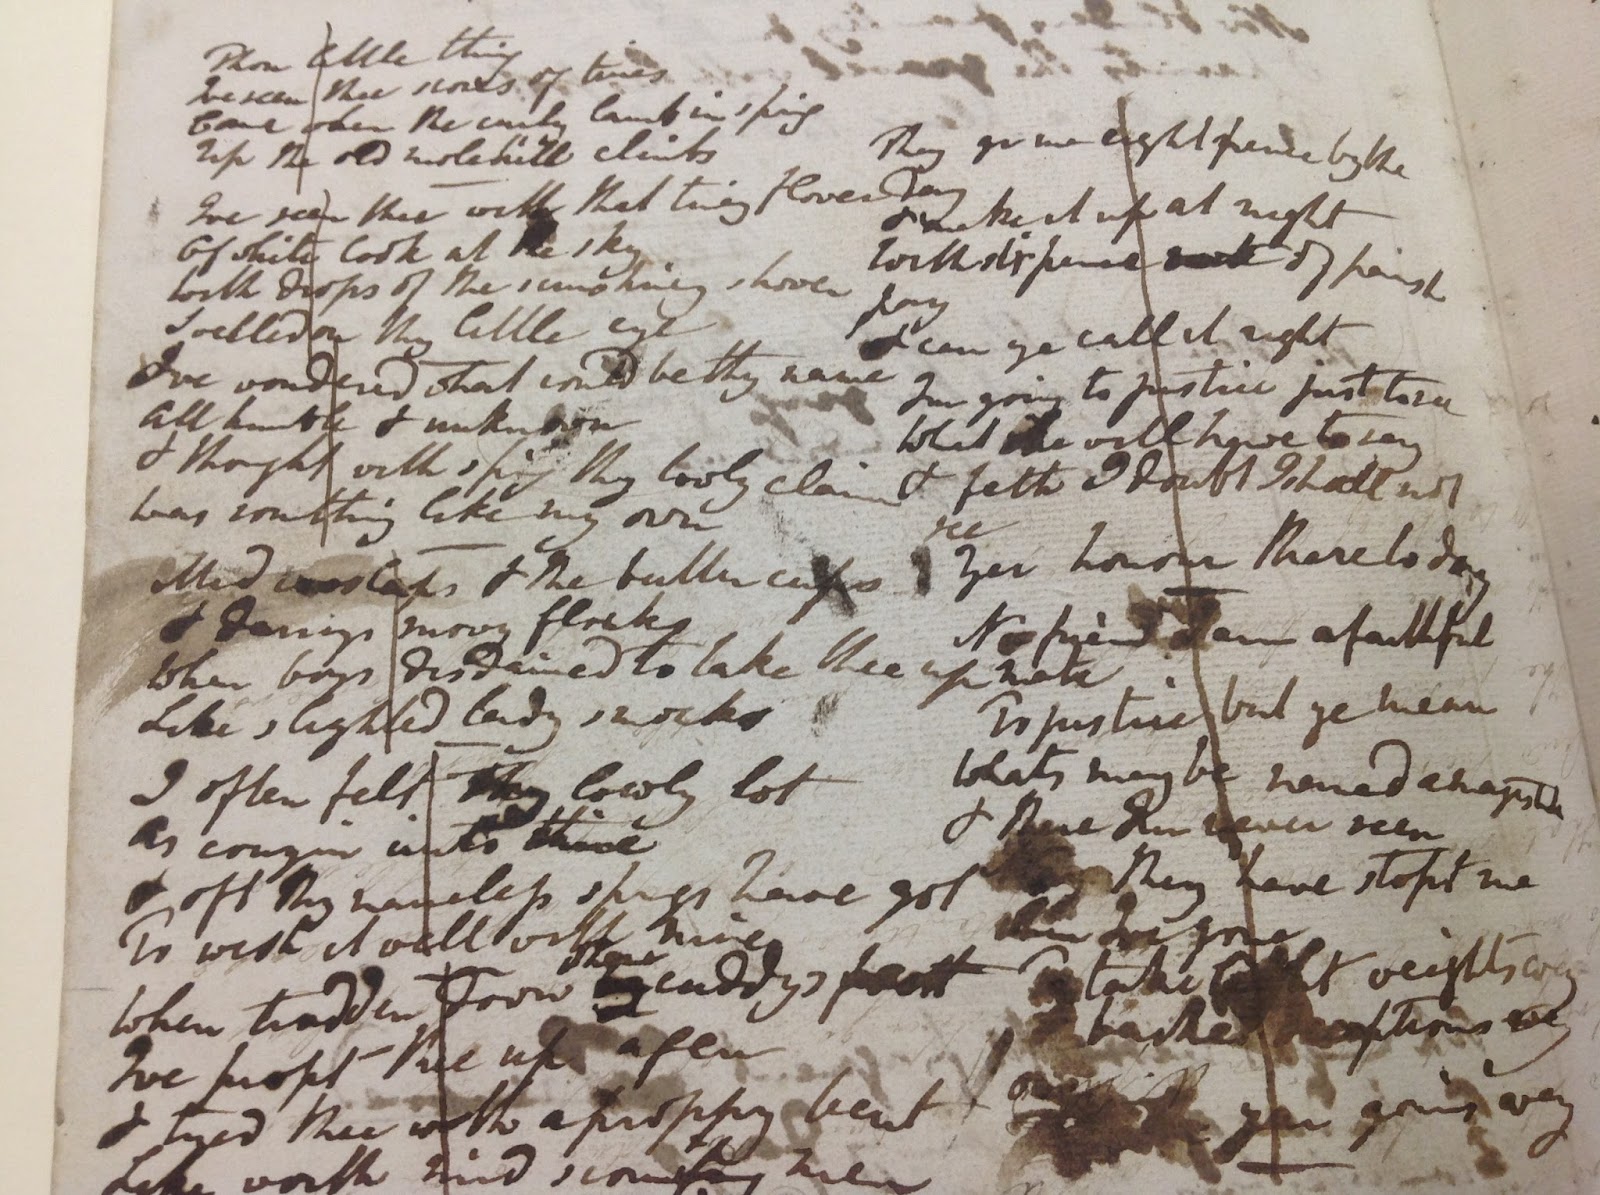 Thou little thing
Ive seen thee scores of times
Come when the early lamb in spring
Up the old molehill climbs
Ive seen thee with that tiney flower
Of white look at the sky
With drops of the sunshiney shower
Swelled on thy little eye
Ive wondered what could be thy name
All humble & unknown
& thought with spring thy lowly claim
Was somthing like my own
Mid cowslaps & the butter cups
& daiseys snowy flocks
When boys disdained to take thee up
Like slighted lady smocks
I often felt thy lowly lot
As couzin unto thine
& oft thy nameless sprigs have got
To wish it well with mine
When trodden down where cuddys
Ive propt thee up agen
& tyed thee with a proppy bent
Like worth mid scorning men
They gi me eight pence by the
day
& make it up at night
With six pence of parish
pay
& can ye call it right
Im going to justice just to see
What he will have to say
& feth I doubt I shall not
see
Yer honour there to day
No friend I am a faithful
mate
To justice but ye mean
Whats may be named a magistrate
& there Im never seen
they have stopt me
when Ive gone
To take light weights
& bushel
yer goin wey